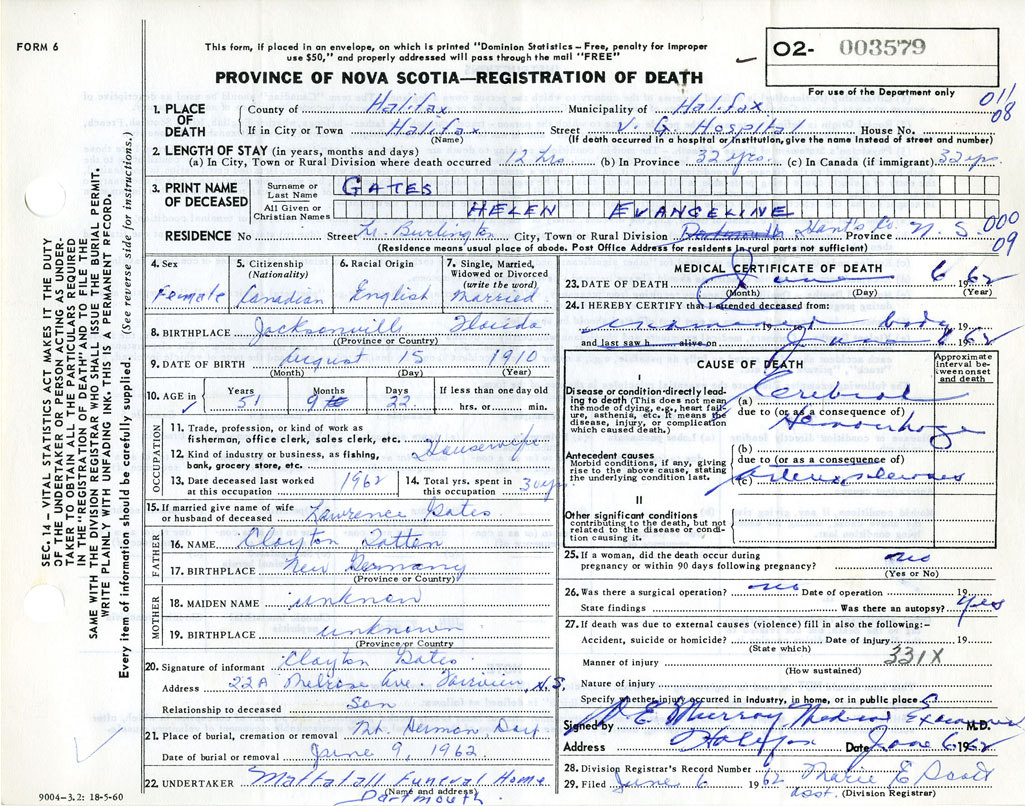 FORM 6
This form, if placed in an envelope, on which is printed "Dominion Statistics – Free, penalty for improper
use $50," and properly addressed will pass through the mail "FREE"
PROVINCE OF NOVA SCOTIA—REGISTRATION OF DEATH
O2- 003579
For use of the Department only
011
08
1. PLACE OF DEATH
County of Halifax Municipality of Halifax
If in City or Town Halifax Street V. G. Hospital House No.
(Name) (If death occurred in a hospital or institution, give the name instead of street and number)
2. LENGTH OF STAY (in years, months and days)
(a) In City, Town or Rural Division where death occurred 12 hrs. (b) In Province 32 yrs. (c) In Canada (if immigrant) 32 yrs.
3. PRINT NAME OF DECEASED
Surname or Last Name GATES
All Given or Christian Names HELEN EVANGELINE
RESIDENCE No Street Lr. Burlington City, Town or Rural Division Hant's Co. Province N. S.
000
09
(Residence means usual place of abode. Post Office Address for residents in rural parts not sufficient)
4. Sex Female
5. Citizenship (Nationality) Canadian
6. Racial Origin English
7. Single, Married, Widowed or Divorced (write the word) Married
8. BIRTHPLACE Jacksonville Florida
(Province or Country)
9. DATE OF BIRTH August 15 1910
(Month) (Day) (Year)
10. AGE in Years 51 Months 9 Days 22 If less than one day old hrs. or min.
OCCUPATION
11. Trade, profession, or kind of work as
fisherman, office clerk, sales clerk, etc. Housewife
12. Kind of industry or business, as fishing,
bank, grocery store, etc.
13. Date deceased last worked at this occupation 1962
14. Total yrs. spent in this occupation 30 yrs
15. If married give name of wife
or husband of deceased Lawrence Gates
FATHER
16. NAME Clayton Totten
17. BIRTHPLACE New Germany
(Province or Country)
MOTHER
18. MAIDEN NAME unknown
19. BIRTHPLACE unknown
(Province or Country
20. Signature of informant Clayton Gates
Address 22A Melrose Ave. Fairview, N.S.
Relationship to deceased Son
21. Place of burial, cremation or removal Mt. Hermon Dart
Date of burial or removal June 9, 1962
22. UNDERTAKER Mattatall Funeral Home
(Name and address)
Dartmouth.
9004–3.2: 18-5-60
MEDICAL CERTIFICATE OF DEATH
23. DATE OF DEATH June 6 62
(Month) (Day) (Year)
24. I HEREBY CERTIFY that I attended deceased from:
examined 19 body 19
and last saw h alive on June 6 1962
CAUSE OF DEATH
Approximate interval between onset and death
I
Disease or condition directly leading to death (This does not mean the mode of dying, e.g., heart failure, asthenia, etc. It means the disease, injury, or complication which caused death.)
(a) Cerebral
due to (or as a consequence of
Hemorrhage
Antecedent causes
Morbid conditions, if any, giving rise to the above cause, stating the underlying condition last.
(b)
due to (or as a consequence of)
(c)
II
Other significant conditions
contributing to the death, but not related to the disease or condition causing it.
25. If a woman, did the death occur during
pregnancy or within 90 days following pregnancy? no
(Yes or No)
26. Was there a surgical operation? no Date of operation 19
State findings Was there an autopsy? Yes
27. If death was due to external causes (violence) fill in also the following:–
Accident, suicide or homicide? Date of injury 19
(State which)
331X
Manner of injury
(How sustained)
Nature of injury
Specify whether injury occurred in industry, in home, or in public place
Signed by E. Murray Medical Examiner M.D.
Address Halifax Date June 6 1962
28. Division Registrar's Record Number
29. Filed June 6 1962 Marie E Scott
asst. (Division Registrar)
SEC. 14 – VITAL STATISTICS ACT MAKES IT THE DUTY
OF THE UNDERTAKER OR PERSON ACTING AS UNDER-
TAKER TO OBTAIN ALL THE PARTICULARS REQUIRED
IN THE "REGISTRATION OF DEATH" AND TO FILE THE
SAME WITH THE DIVISION REGISTRAR WHO SHALL ISSUE THE BURIAL PERMIT.
WRITE PLAINLY WITH UNFADING INK. THIS IS A PERMANENT RECORD.
Every item of information should be carefully supplied. (See reverse side for instructions.)